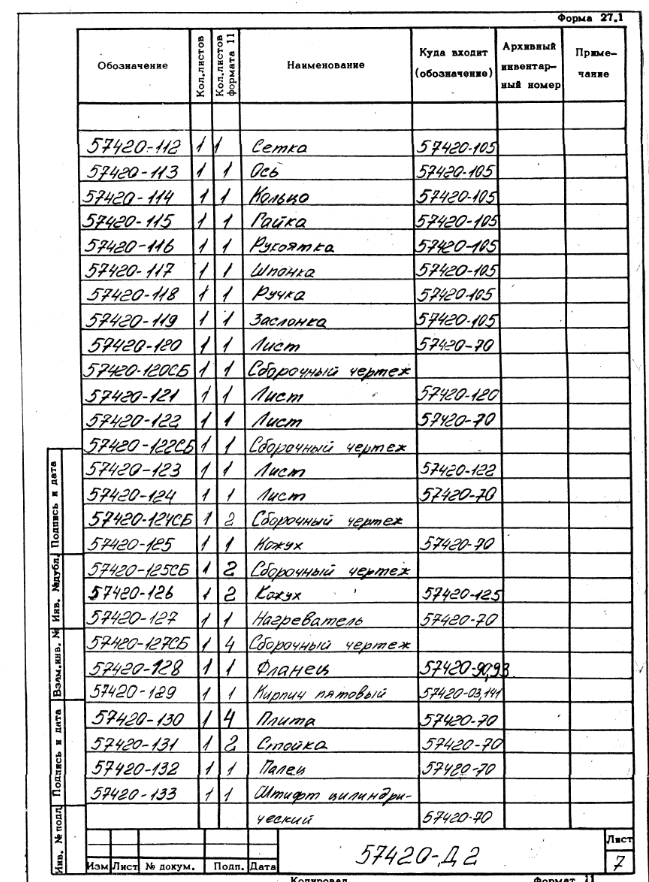 Форма 27.1
Обозначение Кол.листов Кол.листов формата 11 Наименование Куда входит (обозначение) Архивный инвентар-ный номер Приме-чание
57420-112 1 1 Сетка 57420-105
57420-113 1 1 Ось 57420-105
57420-114 1 1 Кольцо 57420-105
57420-115 1 1 Гайка 57420-105
57420-116 1 1 Рукоятка 57420-105
57420-117 1 1 Шпонка 57420-105
57420-118 1 1 Ручка 57420-105
57420-119 1 1 Заслонка 57420-105
57420-120 1 1 Лист 57420-70
57420-120СБ 1 1 Сборочный чертеж
57420-121 1 1 Лист 57420-120
57420-122 1 1 Лист 57420-70
57420-122СБ 1 1 Сборочный чертеж
57420-123 1 1 Лист 57420-122
57420-124 1 1 Лист 57420-70
57420-124СБ 1 2 Сборочный чертеж
57420-125 1 1 Кожух 57420-70
57420-125СБ 1 2 Сборочный чертеж
57420-126 1 2 Кожух 57420-125
57420-127 1 1 Нагреватель 57420-70
57420-127СБ 1 4 Сборочный чертеж
57420-128 1 1 Фланец 57420-90,93
57420-129 1 1 Кирпич пятовый 57420-03,141
57420-130 1 4 Плита 57420-70
57420-131 1 2 Стойка 57420-70
57420-132 1 1 Палец 57420-70
57420-133 1 1 Штифт цилиндри-
ческий 57420-70
Инв. № подл. Подпись и дата Взам.инв. № Инв. №дубл. Подпись и дата
Изм Лист № докум. Подп. Дата
57420-Д2
Лист
7
Копировал Формат 11